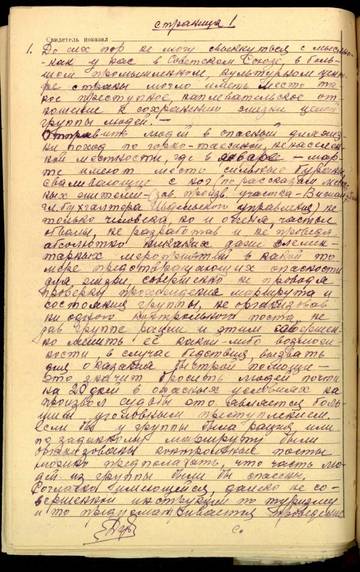 страница 1
Свидетель показал
1. До сих пор не могу свыкнуться с мыслью
как у нас в Советском Союзе, в боль-
шом промышленном, культурном цент-
ре страны могло иметь место та-
кое преступное наплевательское от-
ношение к сохранению жизни целой
группы людей!-
Отправить людей в опасный длижный
поход по горно-таежной, ненаселен-
ной местности, где в январе - мар-
те имеют место сильные бураны,
сваливающие с ног по рассказам мест-
ных жителей
гл. бухгалтера Ивдельского управления) не
только человека, но и оленя, частые
обвалы, не разработав и не проведя
абсолютно никаких даже элемен-
тарных мероприятий в какой то
мере предотвращающих опасности
для жизни, совершенно не проводя
проверки прохождения маршрута и
состояния группы, не организовав
ни одного контрольного поста, не
дав группе рации и этим совершен-
но лишить её какой-либо возможно-
сти в случае бедствия, вызвать
для оказания быстрой помощи -
это значит бросить людей почти
на 20 дней в опасных условиях на
произвол судьбы это является боль-
шим уголовным преступлением.
Если бы у группы была рация, или
по заданному маршруту были
организованы контрольные посты
можно предполагать, что часть лю-
дей из группы были бы спасены,
Согласно имеющейся, далеко не со-
вершенной инструкции по туризму
и то предусматривается проведение